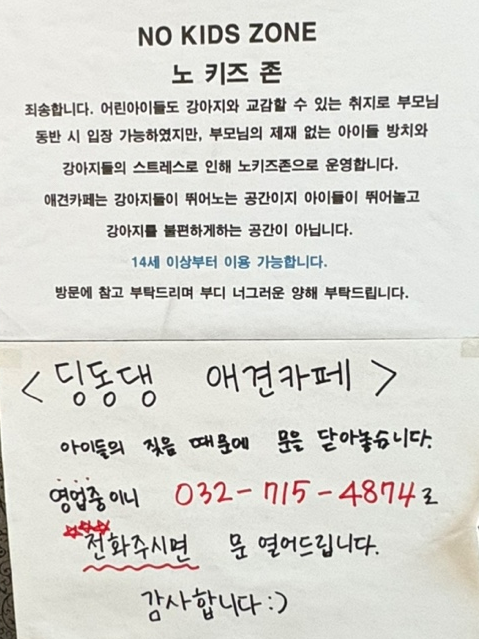 NO KIDS ZONE
노 키즈 존
죄송합니다. 어린아이들도 강아지와 교감할 수 있는 취지로 부모님
동반 시 입장 가능하였지만, 부모님의 제재 없는 아이들 방치와
강아지들의 스트레스로 인해 노키즈존으로 운영합니다.
애견카페는 강아지들이 뛰어노는 공간이지 아이들이 뛰어놀고
강아지를 불편하게하는 공간이 아닙니다.
14세 이상부터 이용 가능합니다.
방문에 참고 부탁드리며 부디 너그러운 양해 부탁드립니다.
< 딩동댕 애견카페 >
아이들의 짖음 때문에 문을 닫아놓습니다.
영업중이니 032-715-4874로
전화주시면 문 열어드립니다.
감사합니다 :)